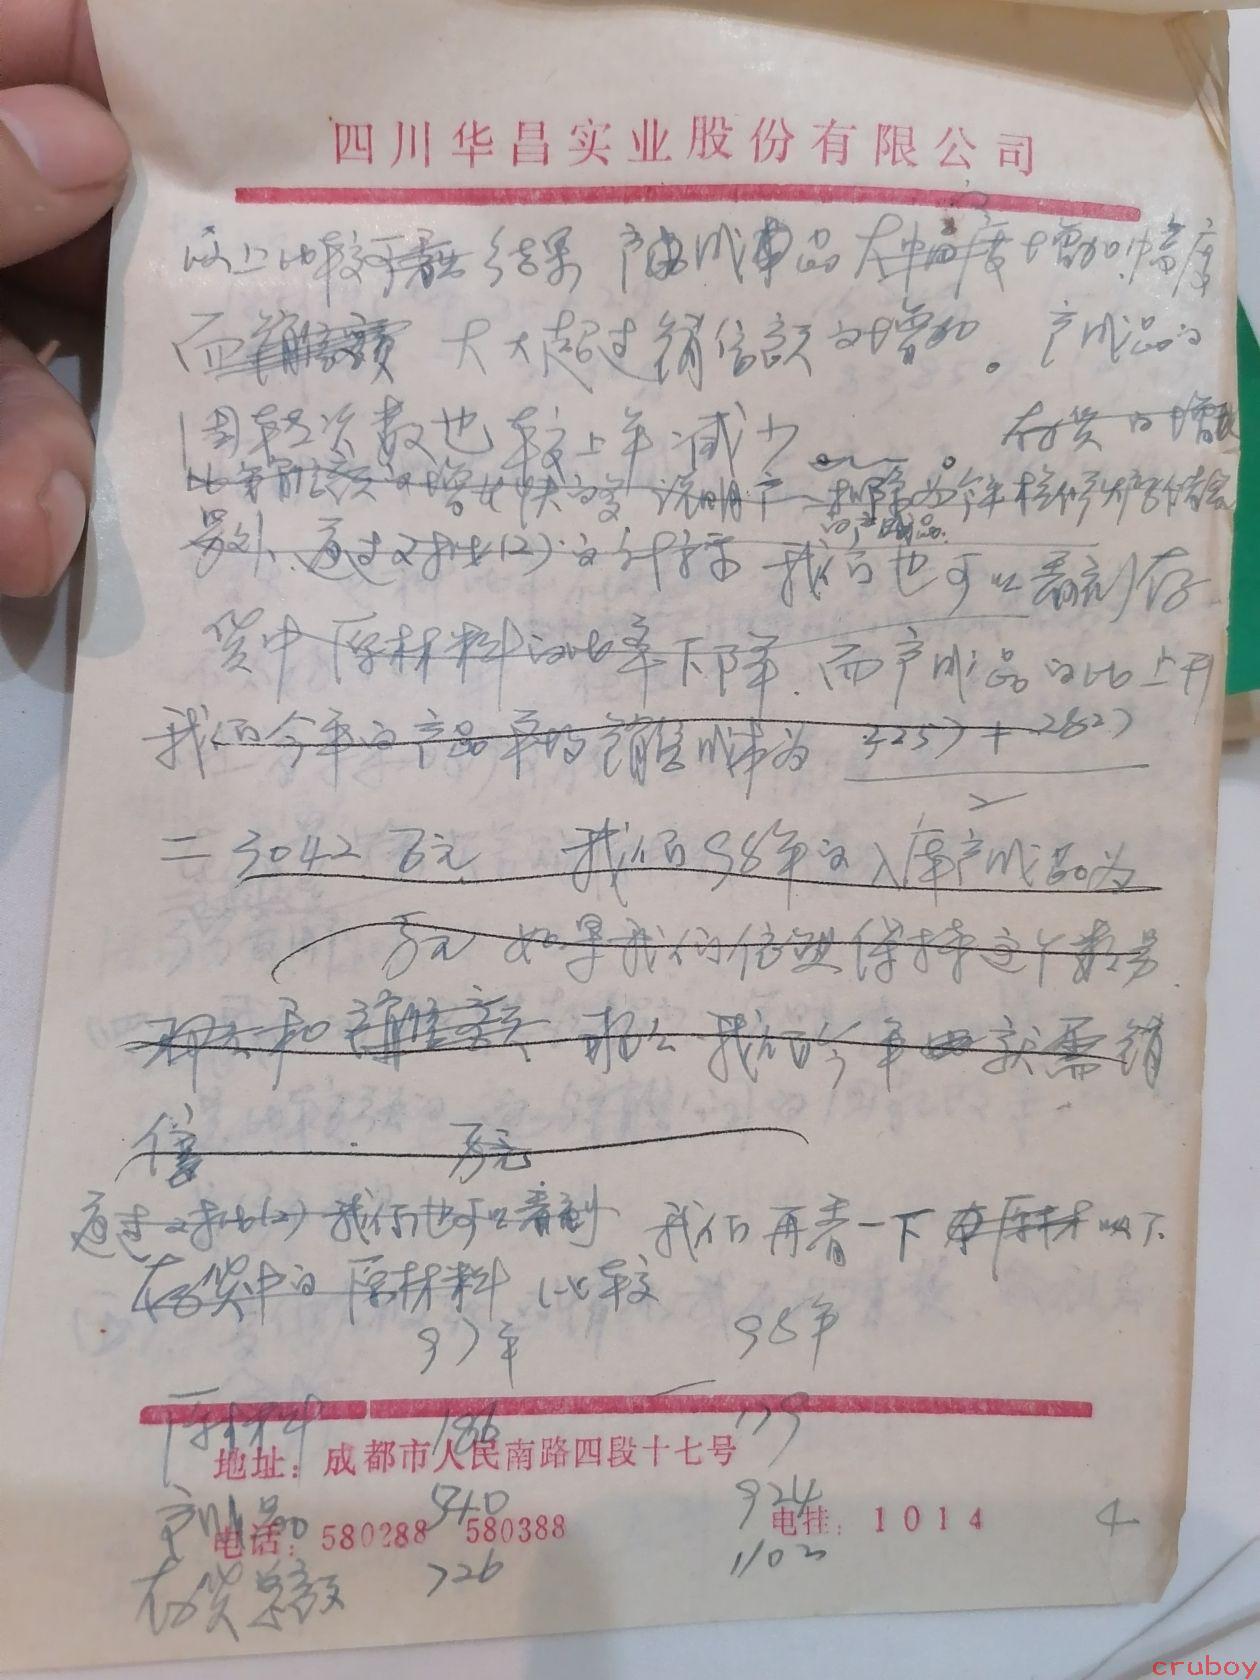 四川华昌实业股份有限公司
以上比较结果 产成品 大幅度增加.幅度
而销售额 大大超过销售额的增加。产成品的
周转次数也较上年减少。存货的增
比销售额的增 快的多 说明产
另外.通过对比(2)的计算 我们也可以看到存
货中原材料的比率下降.而产成品的比上升
我们今年的产品平均销售成本为 3257+2827
2
= 3042 万元 我们98年的入库产成品为
万元 如果我们依照保持这个数
那么和销售额 那么我们今年就需销
售 万元
通过对比(2)我们也可以看到 我们再看一下原材
存货中的原材料比较
97年 98年
原材料 186 179
地址：成都市人民南路四段十七号
产成品 540 924
电话：580288 580388 电挂：1014
4
存货总额 726 1103
cruboy